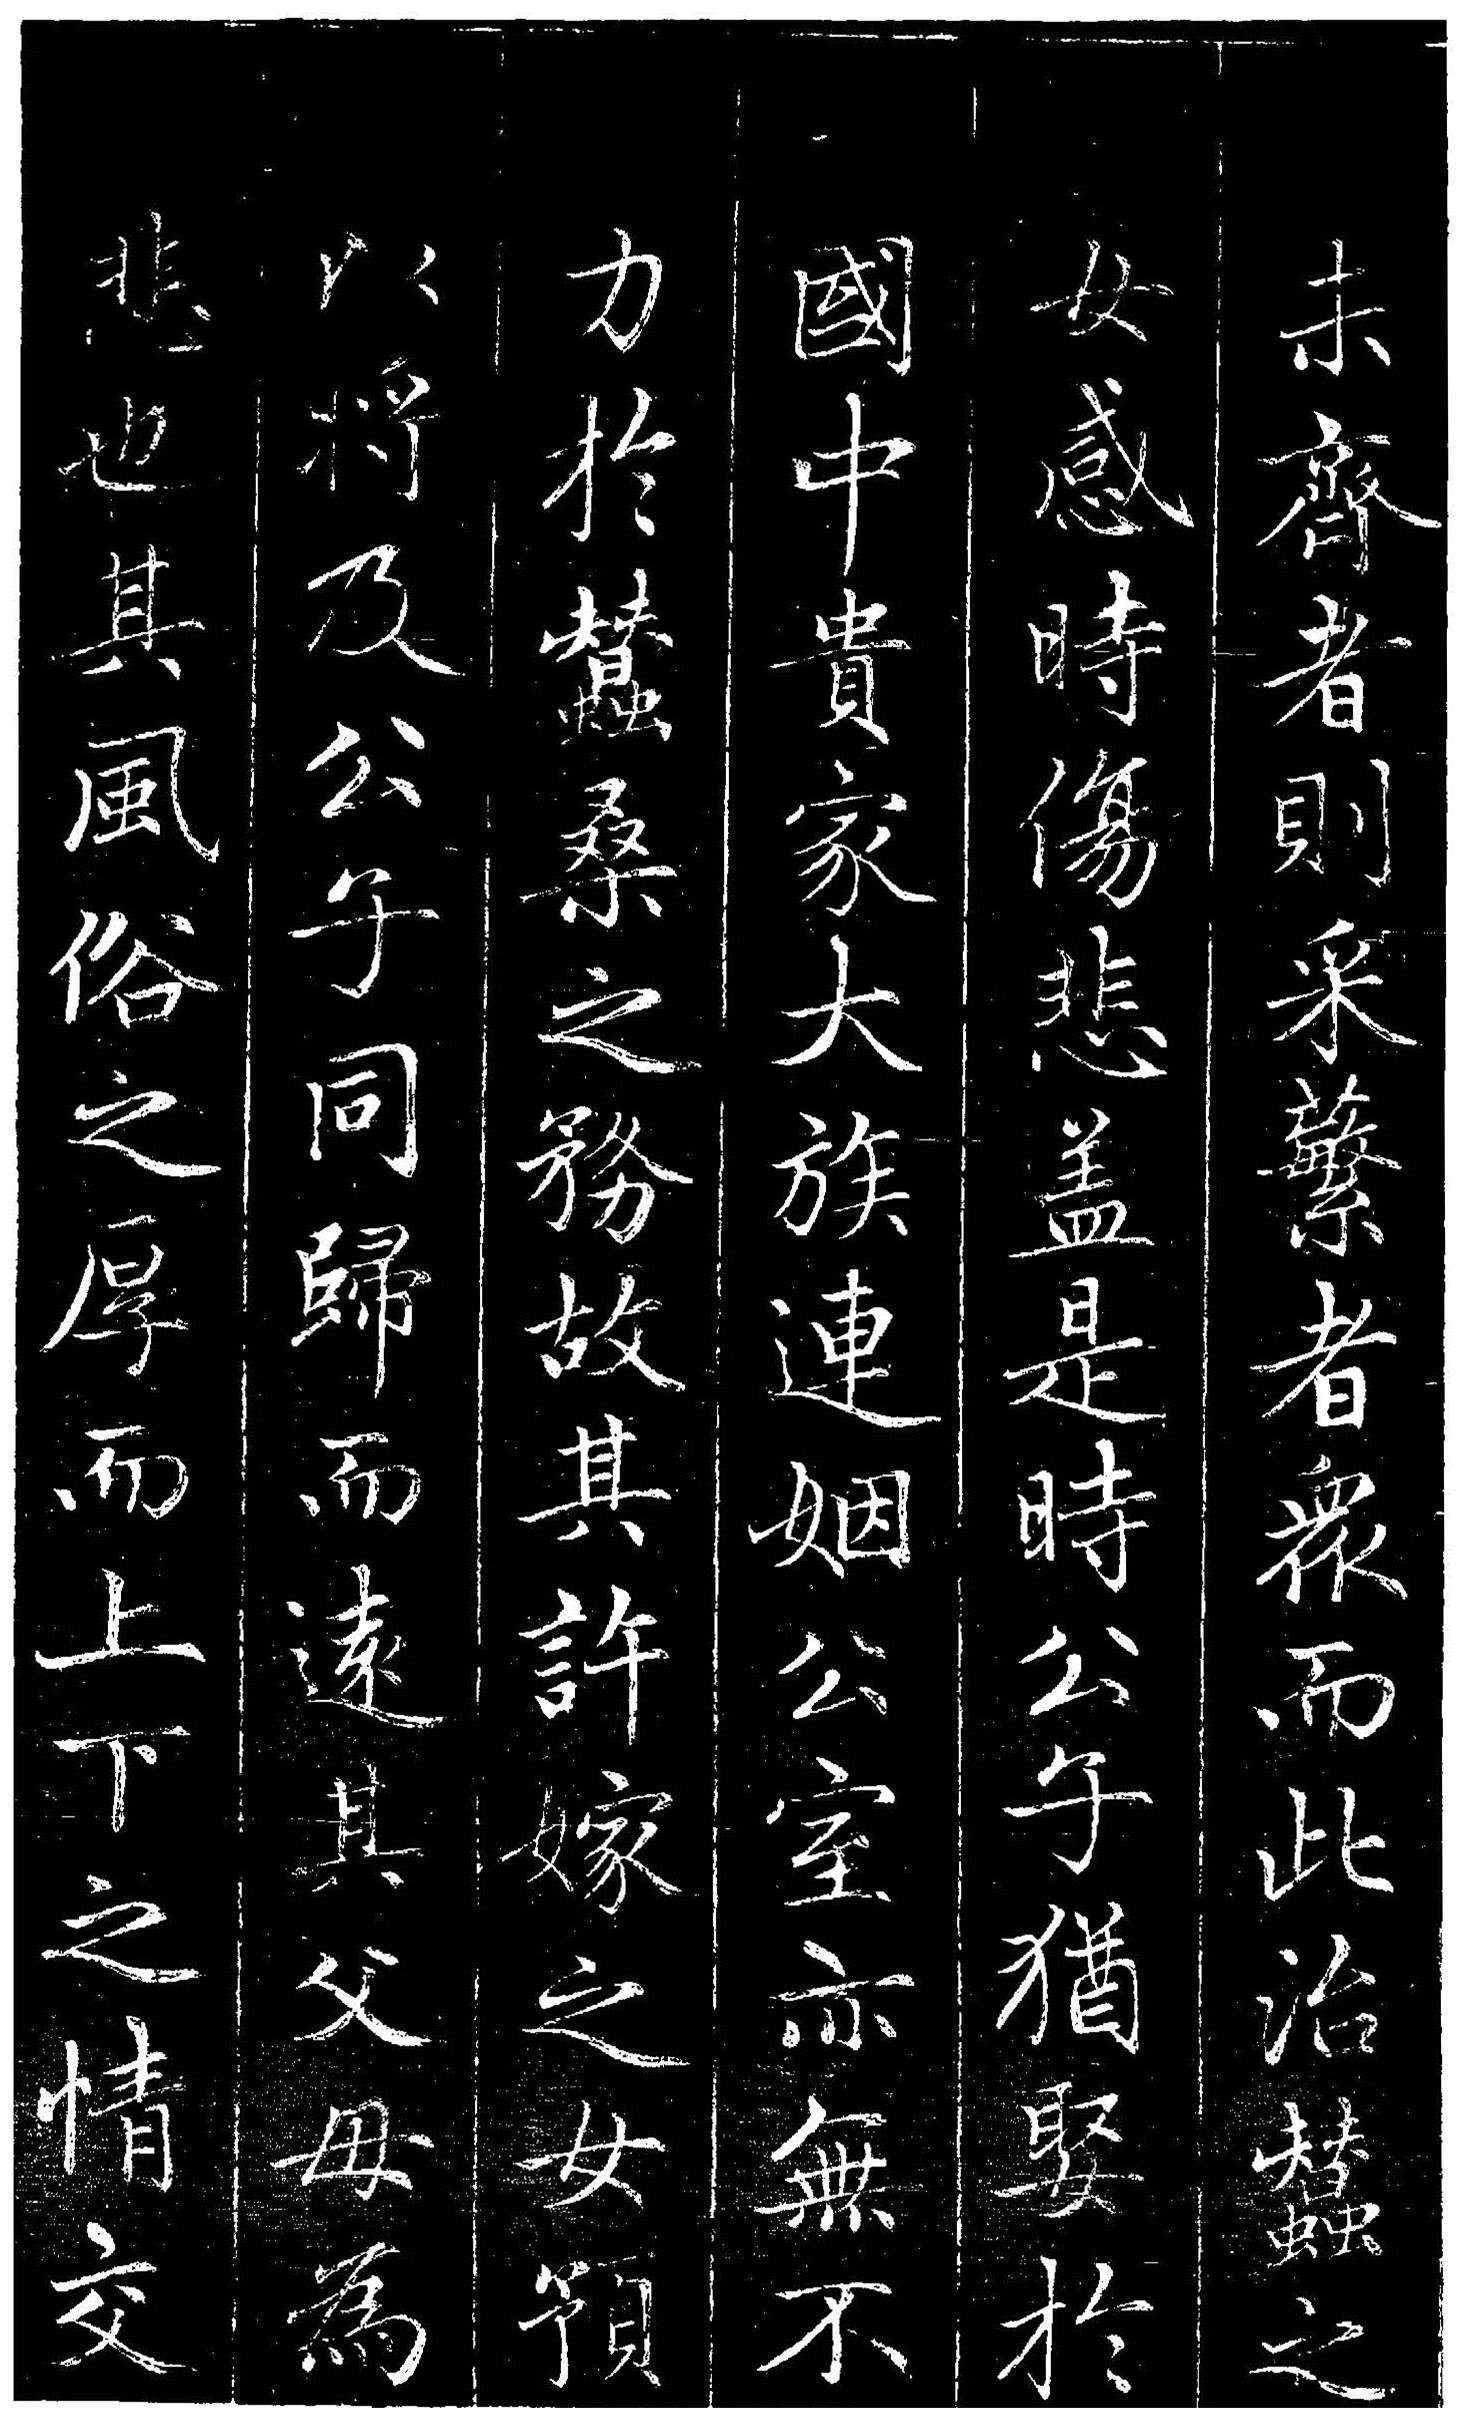 未齊者則采蘩者衆而此治蠶之
女感時傷悲盖是時公子猶娶於
國中貴家大族連姻公室亦無不
力於蠶桑之務故其許嫁之女預
以將及公子同歸而遠其父母為
悲也其風俗之厚而上下之情交